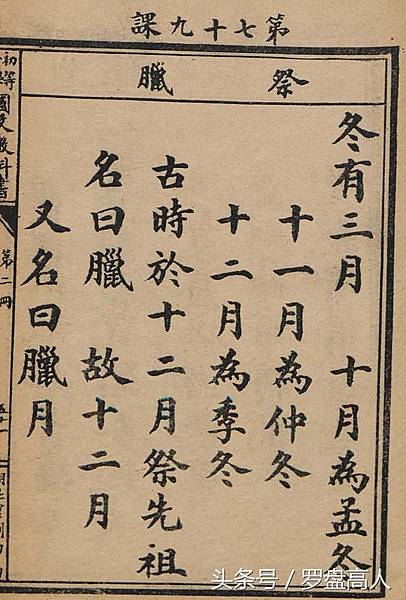 第七十九課
祭臘
冬有三月 十月為孟冬
十一月為仲冬
十二月為季冬
古時於十二月祭先祖
名曰臘 故十二月
又名曰臘月
初等國文教科書
第二冊
头条号 / 罗盘高人